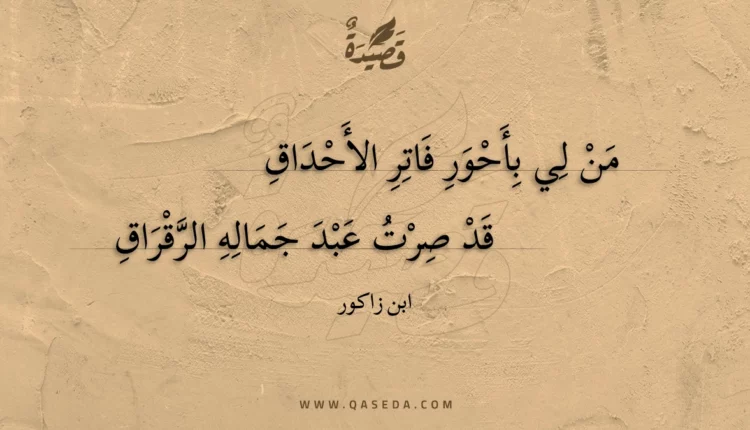 قَصِيدَةٌ
مَنْ لِي بِأَحْوَرِ فَاتِرِ الأَحْدَاقِ
قَدْ صِرْتُ عَبْدَ جَمَالِهِ الرَّقْرَاقِ
ابن زاكور
WWW.QASEDA.COM